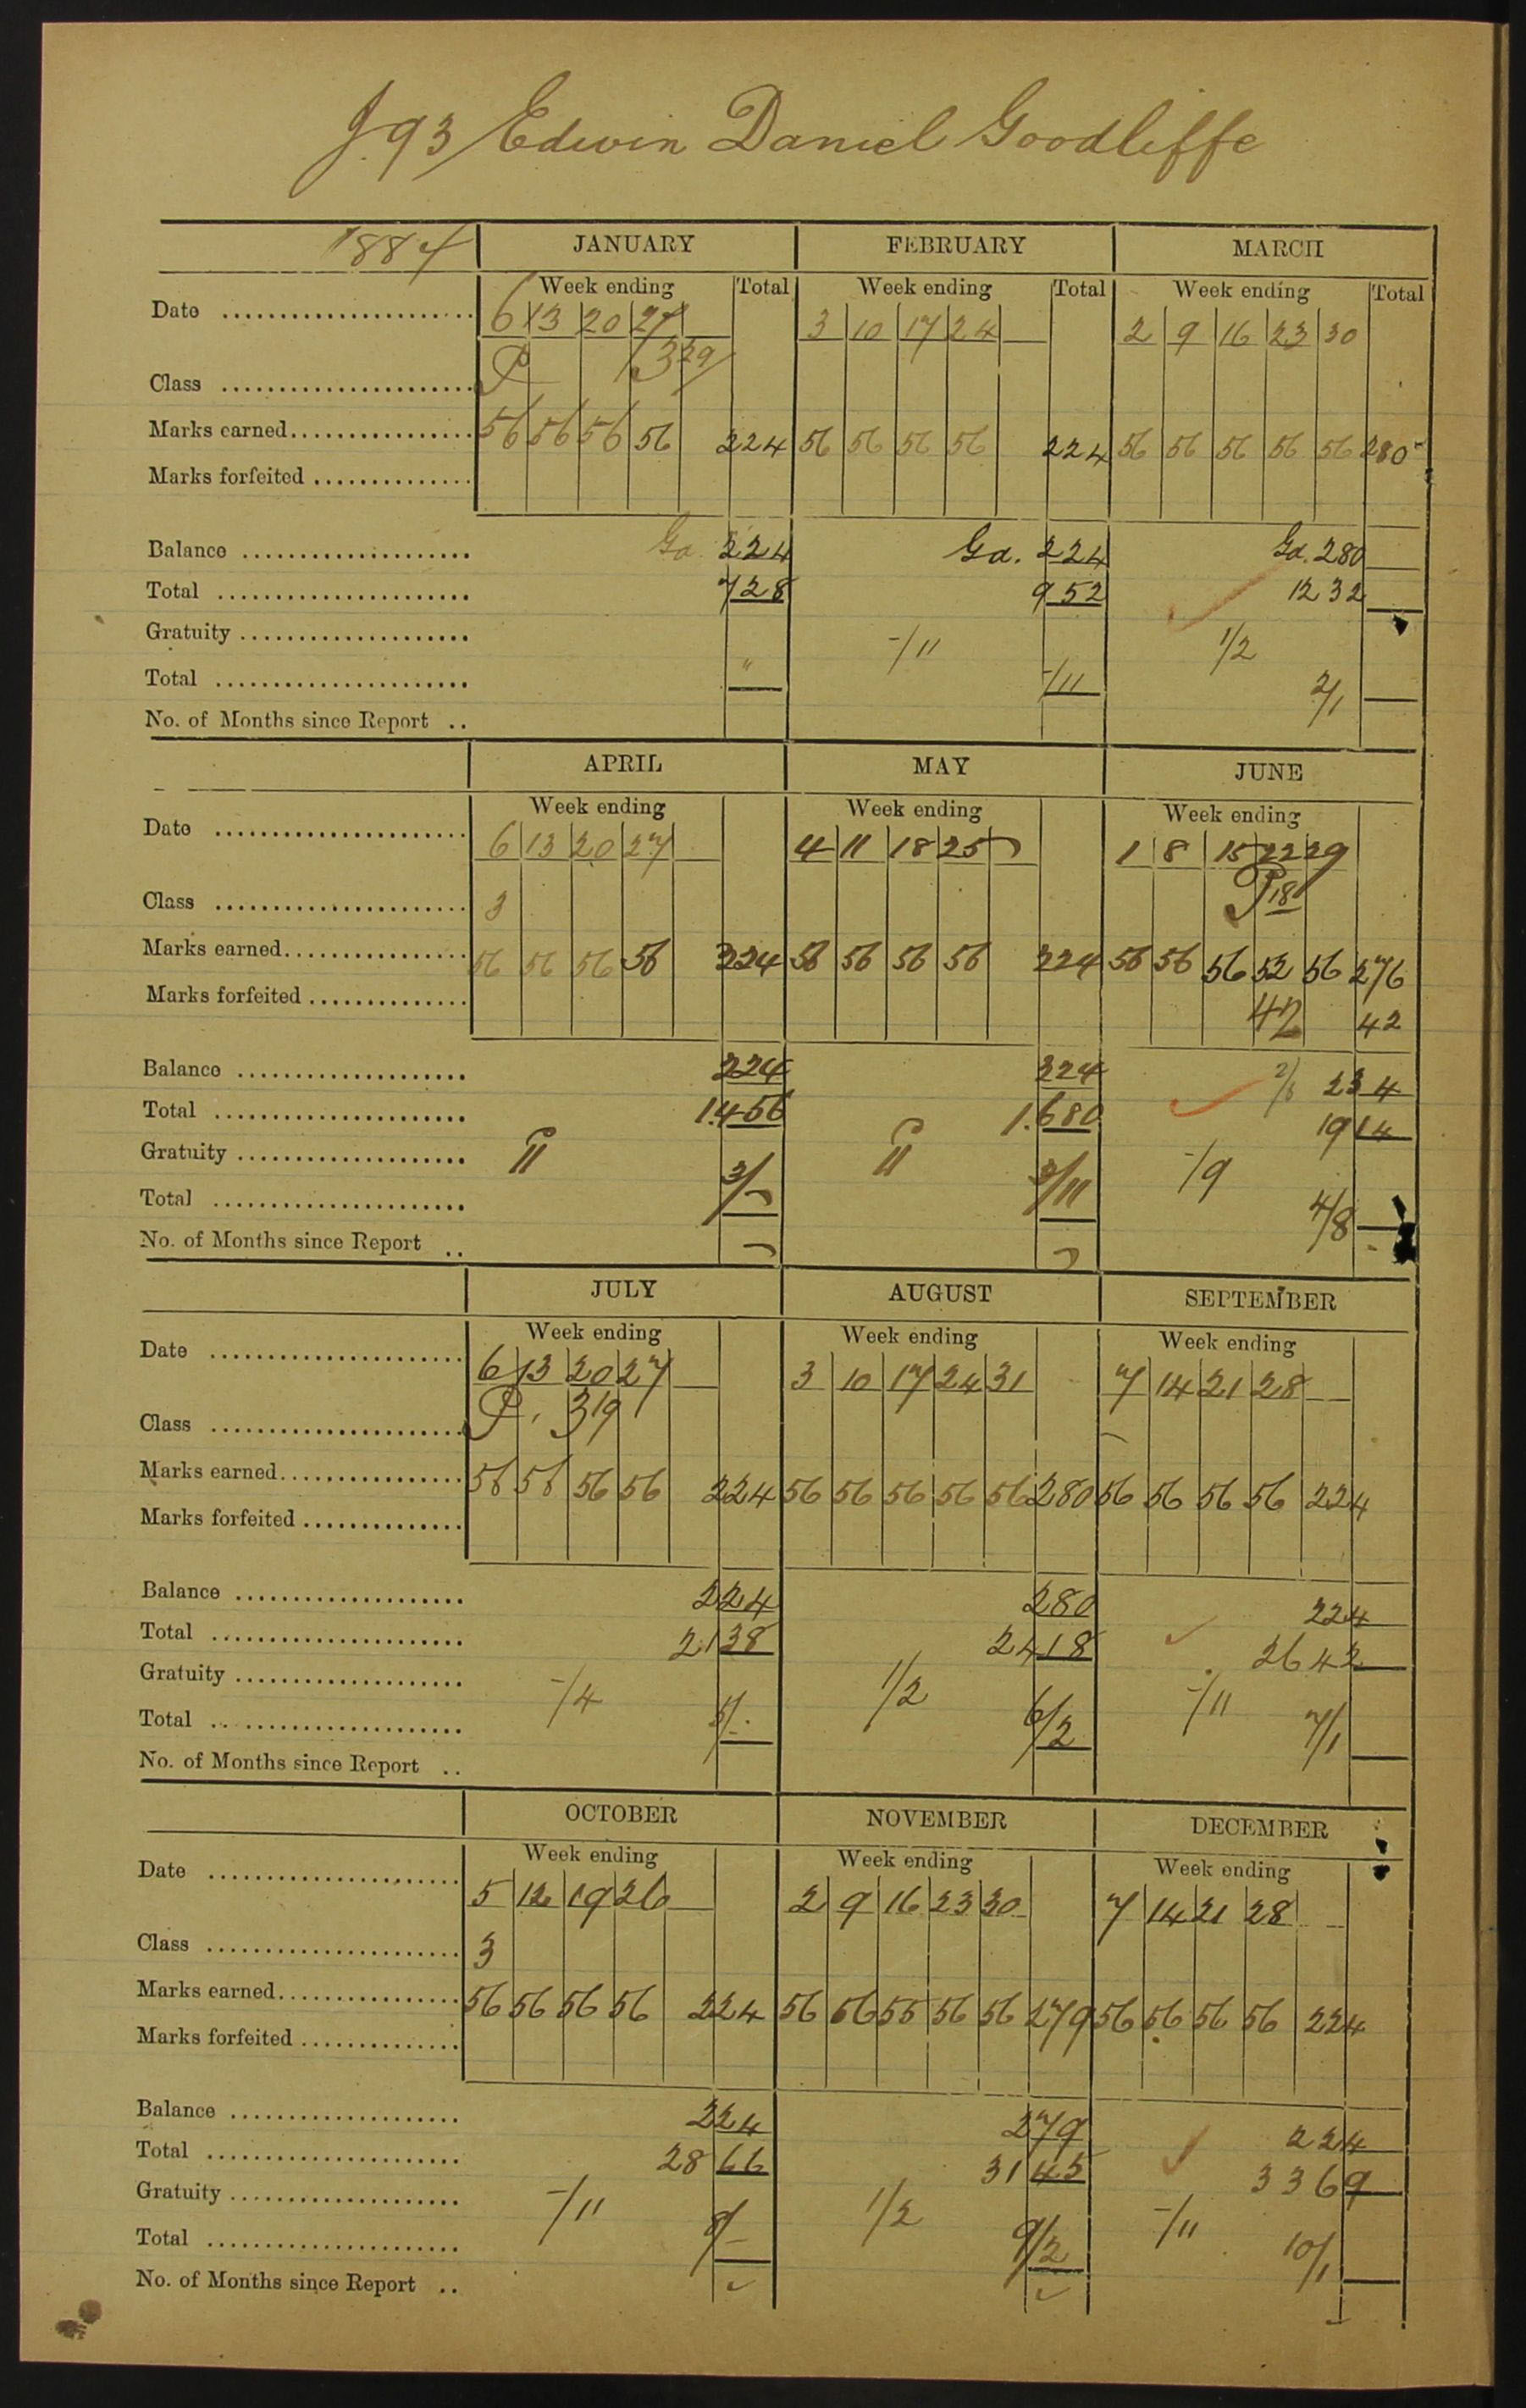 J.93 Edwin Daniel Goodliffe
1884 JANUARY FEBRUARY MARCH
Week ending Total Week ending Total Week ending Total
Date 6 13 20 27 3 10 17 24 2 9 16 23 30
Class P 3 29
Marks earned 56 56 56 56 224 56 56 56 56 224 56 56 56 56 56 280
Marks forfeited
Balance Gd. 224 Gd. 224 Gd. 280
Total 728 952 1232
Gratuity -/11 1/2
Total " -/11 2/1
No. of Months since Report ..
APRIL MAY JUNE
Week ending Week ending Week ending
Date 6 13 20 27 4 11 18 25 1 8 15 22 29
Class 3 P 18
Marks earned 56 56 56 56 224 56 56 56 56 224 56 56 56 52 56 276
Marks forfeited 42 42
Balance 224 224 234
Total 1.456 1.680 1914
Gratuity 11 11 -/9
Total 3/- 3/11 4/8
No. of Months since Report ..
JULY AUGUST SEPTEMBER
Week ending Week ending Week ending
Date 6 13 20 27 3 10 17 24 31 7 14 21 28
Class P. 3 19
Marks earned 56 56 56 56 224 56 56 56 56 56 280 56 56 56 56 224
Marks forfeited
Balance 224 280 224
Total 2138 2418 2642
Gratuity -/4 1/2 -/11
Total 5/- 6/2 7/1
No. of Months since Report ..
OCTOBER NOVEMBER DECEMBER
Week ending Week ending Week ending
Date 5 12 19 26 2 9 16 23 30 7 14 21 28
Class 3
Marks earned 56 56 56 56 224 56 56 55 56 56 279 56 56 56 56 224
Marks forfeited
Balance 224 279 224
Total 2866 3145 3369
Gratuity -/11 1/2 -/11
Total 8/- 9/2 10/1
No. of Months since Report ..